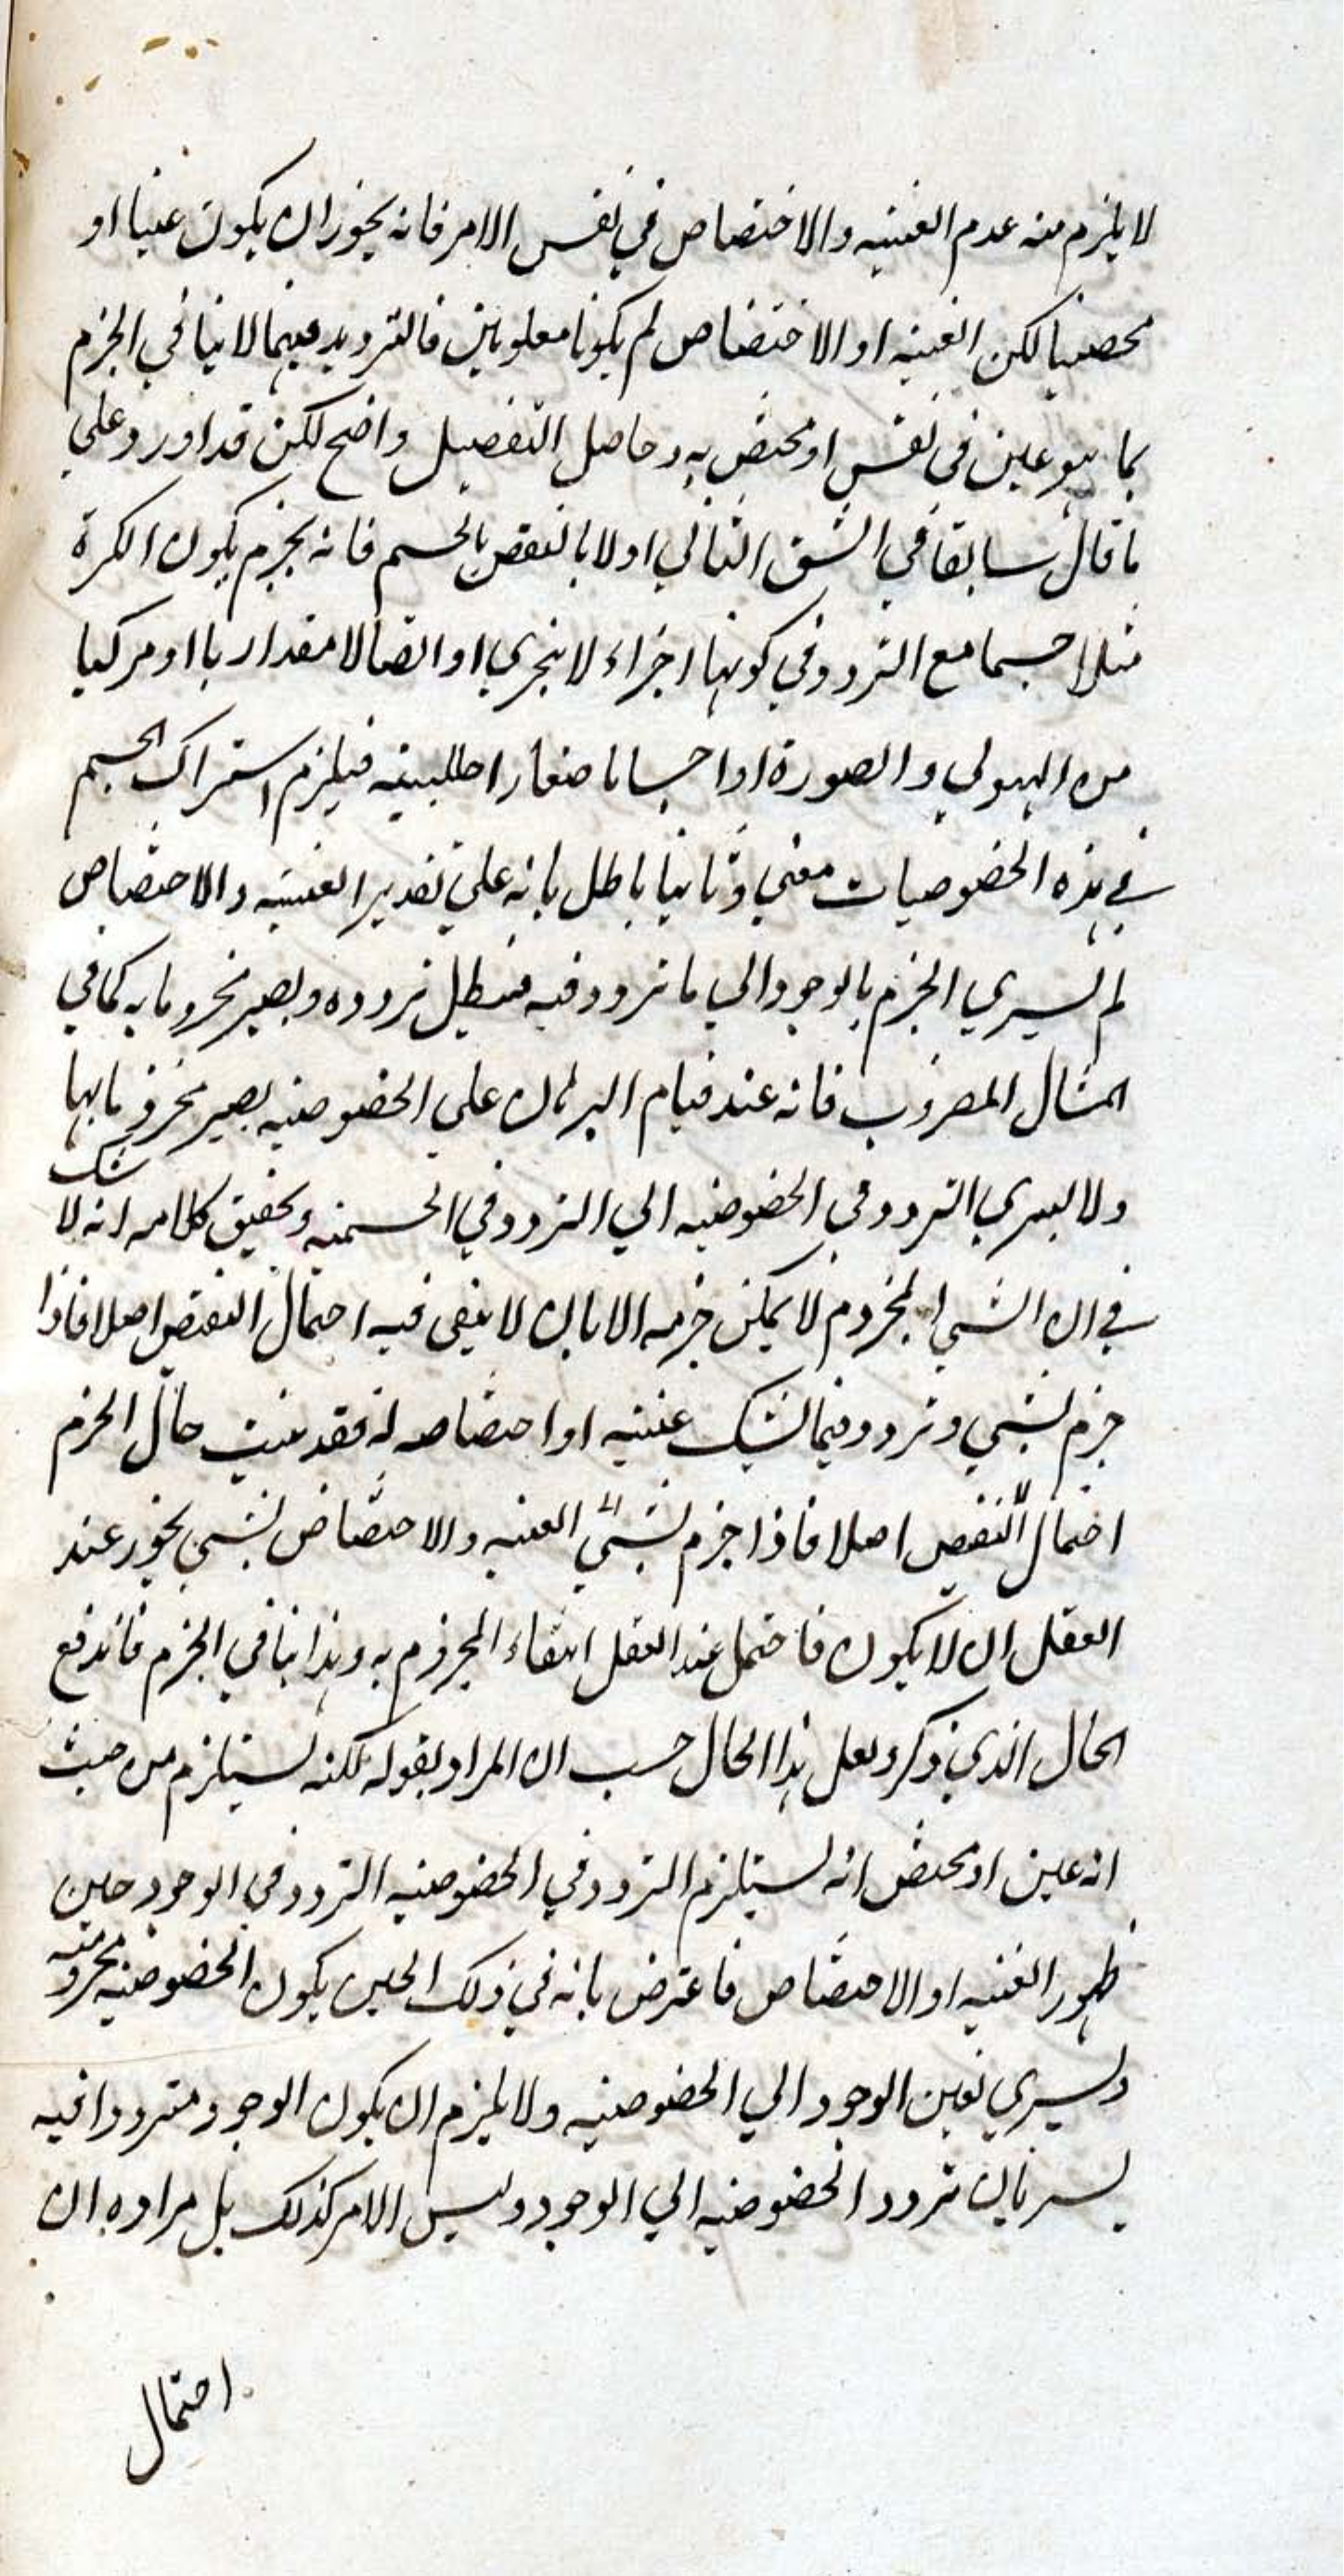 لا يلزم منه عدم العينيه والاختصاص في نفس الامر فانه يجوز ان يكون عينا او
مختصا لكن العينيه او الاختصاص لم يكونا معلومين فالترديد فيهما لا ينافي الجزم
بما هو عين في نفس او مختص به وحاصل التفصيل واضح لكن قد اورد علي
ما قال سابقا في الشق الثاني اولا بالنقض بالجسم فانه يجزم بكون الكرة
مثلا جسما مع التردد في كونها اجزاء لا يتجزي او اتصالا مقداريا او مركبا
من الهيولي والصورة او اجساما صغارا صلبيته فيلزم اشتراك الجسم
في هذه الخصوصيات معني وثانيا باطل بانه علي تقدير العينيه والاختصاص
لم يسري الجزم بالوجود الي ما تردد فيه فيبطل تردده ويصير مجزوما به كما في
المثال المضروب فانه عند قيام البرهان علي الخصوصيه يصير مجزوما بها
ولا يسري التردد في الخصوصيه الي التردد في الجسميه وتحقيق كلامه انه لا شك
في ان الشي المجزوم لا يمكن جزمه الا بان لا يبقي فيه احتمال النقيض اصلا فاذا
جزم بشي وتردد فيما يشك عينيه او اختصاصه له فقد حال الجزم
احتمال النقيض اصلا فاذا جزم بشي العينيه والاختصاص بشي يجوز عند
العقل ان لا يكون فاحتمل عند العقل انتفاء المجزوم به وهذا ينافي الجزم فاندفع
الحال الذي ذكر ولعل هذا الحال حسب ان المراد بقوله لكنه يستلزم من حيث
انه عين او مختص انه يستلزم التردد في الخصوصيه التردد في الوجود حين
ظهور العينيه او الاختصاص فاعترض بانه في ذلك الحين يكون الخصوصيه مجزومته
ويسري تعين الوجود الي الخصوصيه ولا يلزم ان يكون الوجود مترددا فيه
بسريان تردد الخصوصيه الي الوجود وليس الامر كذلك بل مراده ان
احتمال